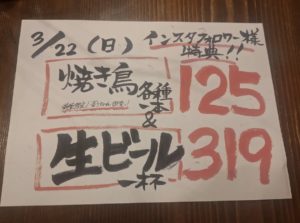 3/22(日) インスタフォロワー様
特典!!
焼き鳥各種一本 125
&
生ビール一杯 319